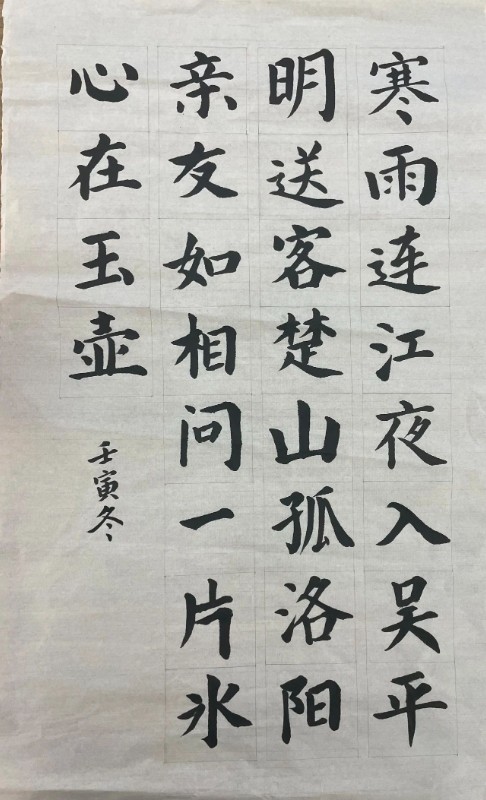 寒雨连江夜入吴平
明送客楚山孤洛阳
亲友如相问一片冰
心在玉壶
壬寅冬